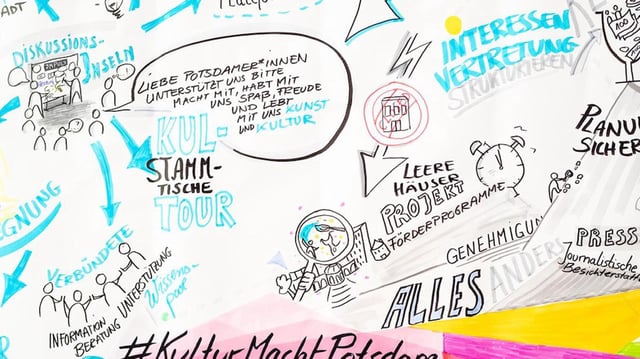 DISKUSSIONS-
INSELN
LIEBE POTSDAMER*INNEN
UNTERSTÜTZT UNS BITTE
MACHT MIT, HABT MIT
UNS SPAẞ, FREUDE
UND LEBT
MIT UNS KUNST
UND KULTUR
KUL-
STAMM-
TISCHE
TOUR
INTERESSEN
VERTRETUNG
STRUKTURIEREN
100
LEERE
HÄUSER
PROJEKT
FÖRDERPROGRAMME
VERBÜNDETE
INFORMATION
BERATUNG
UNTERSTÜTZUNG
Wissens-
pool
GENEHMIGUN
ALLES ANDERS
PRESS
Journalistische
#KulturMachtPotsdam